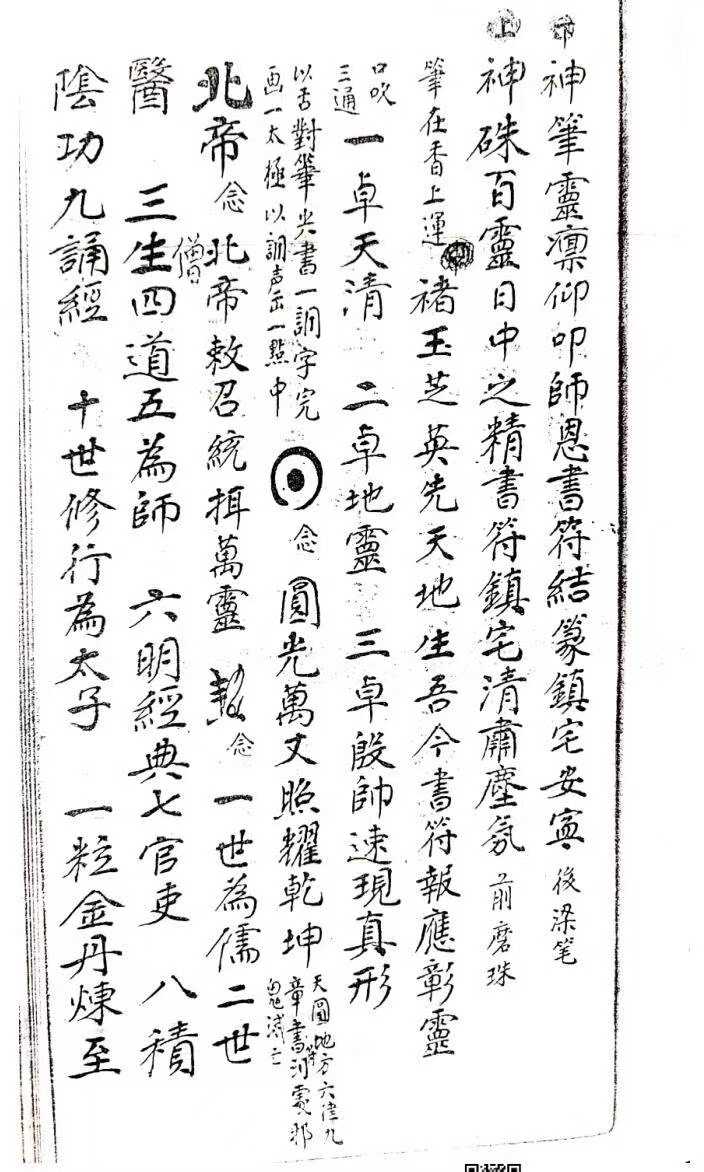 神筆靈凛仰叩師恩書符結篆鎮宅安寕 後染笔
上 神硃百靈日中之精書符鎮宅清肅塵氛 前磨珠
筆在香上運 禇玉芝英先天地生吾今書符報應彰靈
口吹三通 一卓天清 二卓地靈 三卓殷帥速現真形
以舌對筆尖書一詷字完
画一太極以詷声缶一點中 念 圓光萬丈照耀乾坤 天圓地方六律九
章書符河處邪
鬼滅亡
北帝 念 北帝敕召統揖萬靈 念 一世為儒二世
醫 三生僧四道五為師 六明經典七官吏 八積
陰功九誦經 十世修行為太子 一粒金丹煉至